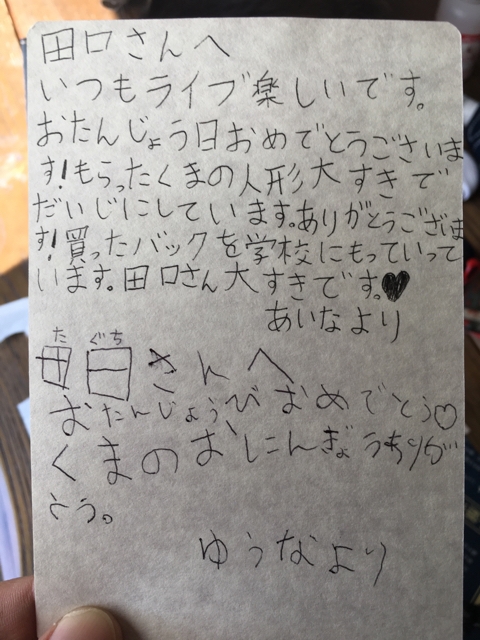 田口さんへ
いつもライブ楽しいです。
おたんじょう日おめでとうございま
す!もらったくまの人形大すきで
だいじにしています。ありがとうございま
す!買ったバックを学校にもっていって
います。田口さん大すきです。♥
あいなより
た ぐち
田日さんへ
おたんじょうびおめでとう♡
くまのおにんぎょうありが
とう。
ゆうなより